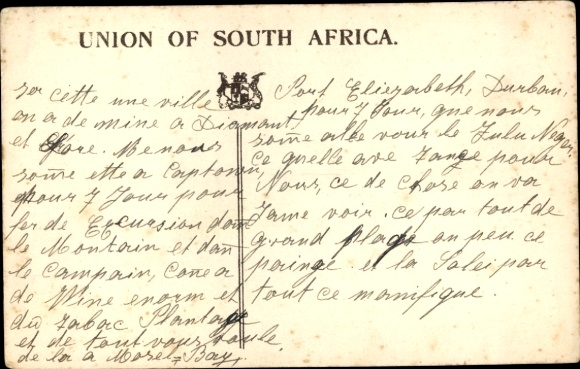 UNION OF SOUTH AFRICA.
cette une ville
on a de mine a Diamant,
et Lore. Me nous
some ette a Captown
pour 7 Jour pour
fer de Excursion dan
le Montain et dan
le Campain, cone a
de Wine enorm et
du Tabac Plantage
et de tout vous voule.
de la a Mosel-Bay,
Port Eliezabeth, Durban,
pour 7 Jour, que nous
some alle vour le Zulu Neger
ce quelle ave pour
Nous, ce de chose on va
Jame voir. ce par tout de
grand plage on peu ce
painge et la Solei par
tout ce manifique.